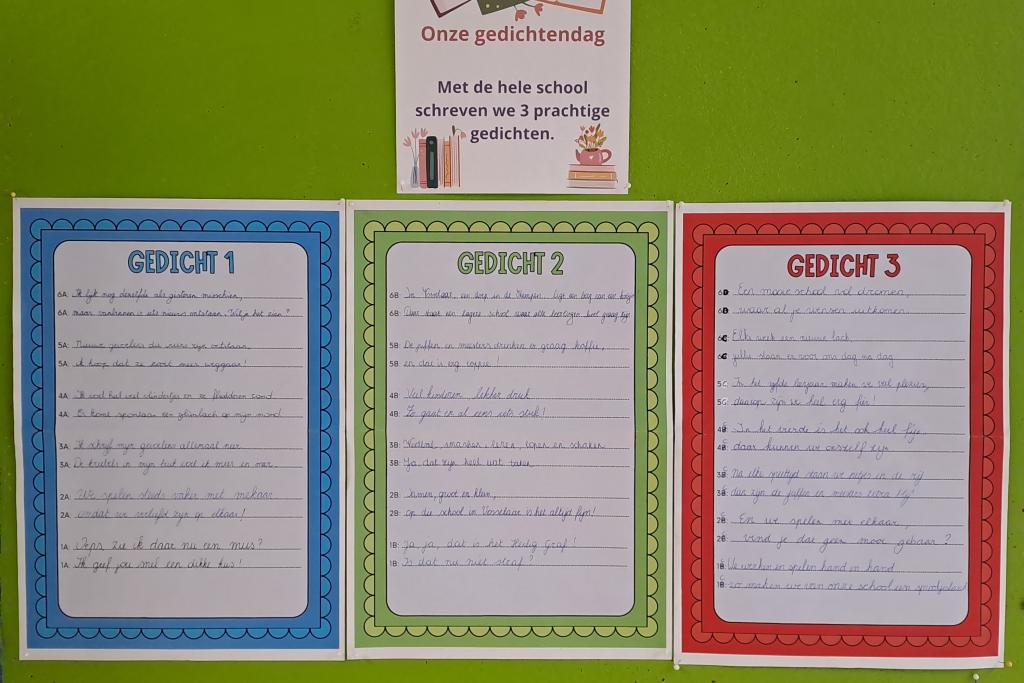 Onze gedichtendag
Met de hele school
schreven we 3 prachtige
gedichten.
GEDICHT 1
6A: Ik lijk nog dezelfde als gisteren misschien,
6A: maar vanbinnen is iets nieuws ontstaan. Wil je het zien?
5A: Nieuwe gevoelens die zijn ontstaan,
5A: ik hoop dat ze nooit meer weggaan!
4A: Ik voel heel veel vlindertjes en ze fladderen rond.
4A: Er komt spontaan een glimlach op mijn mond.
3A: Ik schrijf mijn gevoelens allemaal neer.
3A: De kriebels in mijn buik voel ik meer en meer.
2A: We spelen steeds vaker met mekaar
2A: omdat we verliefd zijn op elkaar!
1A: Oeps, zie ik daar nu een mus?
1A: Ik geef jou snel een dikke kus!
GEDICHT 2
6B: In Vosselaar, een dorp in de Kempen... ligt een berg van een
6B: Daar staat een lagere school waar alle leerlingen heel graag zijn
5B: De juffen en meesters drinken er graag koffie,
5B: en dat is erg
4B: Veel kinderen, lekker druk
4B: Zo gaat er al eens iets stuk!
3B: Voetbal, smashen, lezen, lopen en schaken
3B: Ja, dat zijn heel wat taken
2B: Samen, groot en klein,
2B: op die school in Vosselaar is het altijd fijn!
1B: Ja, ja, dat is het Heilig Graf!
1B: Is dat nu niet straf?
GEDICHT 3
6D Een mooie school vol dromen,
6D waar al je wensen uitkomen.
6C Elke week een nieuwe lach,
6C jullie staan er voor ons dag na dag
5C: In het vijfde leerjaar maken we veel plezier,
5C: daarop zijn we heel erg fier!
4C In het vierde is het ook heel fijn,
4C daar kunnen we onszelf zijn
3C Na elke speeltijd staan we netjes in de rij
3C dan zijn de juffen en meesters extra blij!
2C En we spelen met elkaar,
2C vind je dat geen mooi gebaar?
1C We werken en spelen hand in hand
1C zo maken we van onze school een